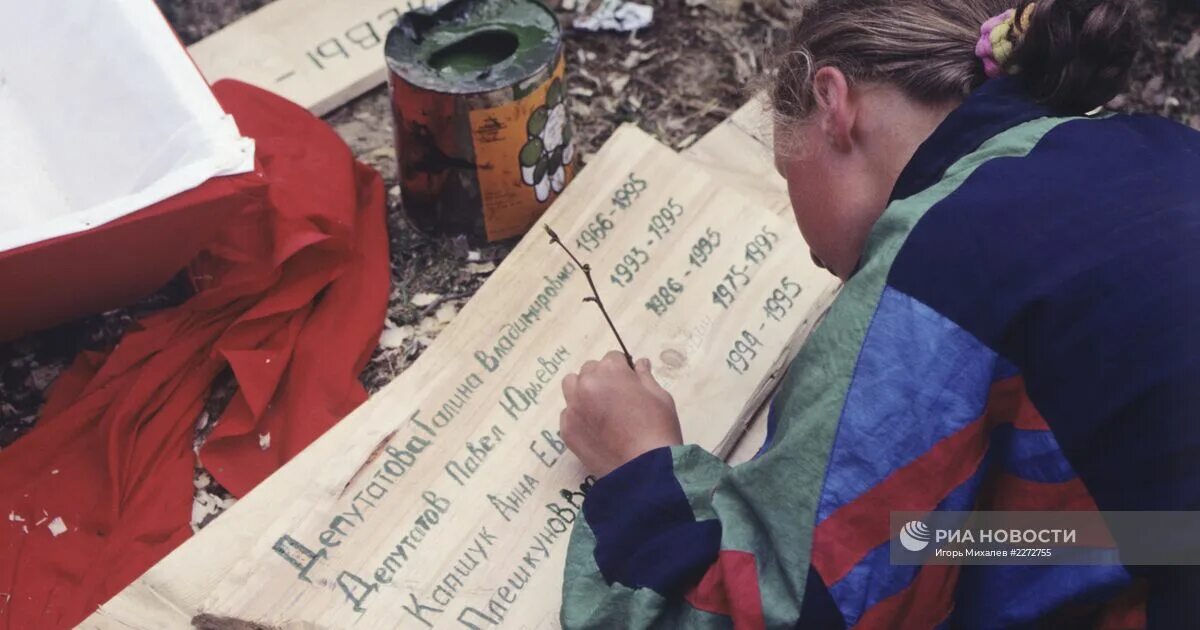 Депутатова Галина Владимировна 1966-1995
Депутатов Павел Юрьевич 1993-1995
Капшук Анна Ев 1986-1995
Плешкуновы 1975-1995
1994-1995
РИА НОВОСТИ
Игорь Михалев #2272755